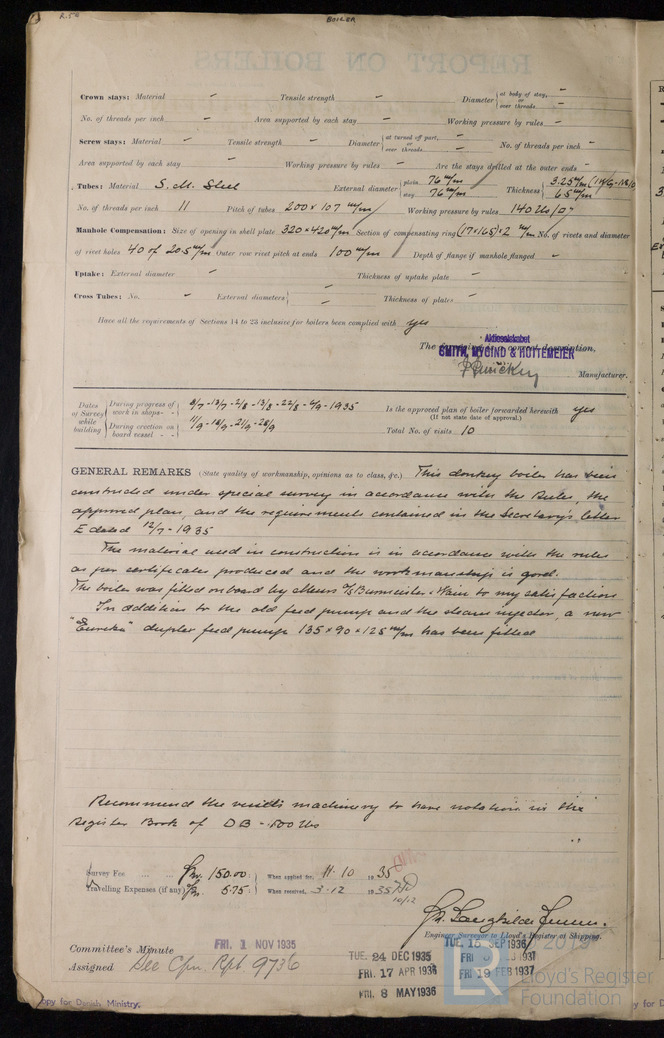 R.50
BOILER
Crown stays: Material - Tensile strength - Diameter { at body of stay, - or over threads -
No. of threads per inch - Area supported by each stay - Working pressure by rules -
Screw stays: Material - Tensile strength - Diameter { at turned off part, - or over threads - No. of threads per inch -
Area supported by each stay - Working pressure by rules - Are the stays drilled at the outer ends -
Tubes: Material S. M. Steel External diameter { plain 76 m/m stay 76 m/m Thickness { 3.25 m/m 6.5 m/m
No. of threads per inch 11 Pitch of tubes 200 x 107 m/m Working pressure by rules 140 lbs/□"
Manhole Compensation: Size of opening in shell plate 320 x 420 m/m Section of compensating ring (17x165)x2 m/m No. of rivets and diameter
of rivet holes 40 of 20.5 m/m Outer row rivet pitch at ends 100 m/m Depth of flange if manhole flanged -
Uptake: External diameter - Thickness of uptake plate -
Cross Tubes: No. - External diameters { - - Thickness of plates -
Have all the requirements of Sections 14 to 23 inclusive for boilers been complied with yes
The foregoing is a correct description,
Aktieselskabet
SMITH, MYGIND & HÜTTEMEIER
Manufacturer.
Dates of Survey while building { During progress of work in shops - - 8/7-13/7-2/8-13/8-22/8-6/9-1935 Is the approved plan of boiler forwarded herewith yes
(If not state date of approval.)
During erection on board vessel - - 11/9-16/9-21/9-28/9 Total No. of visits 10
GENERAL REMARKS (State quality of workmanship, opinions as to class, &c.) This donkey boiler has been
constructed under special survey in accordance with the Rules, the
approved plan, and the requirements contained in the Secretary's letter
E dated 12/7-1935
The material used in construction is in accordance with the rules
as per certificates produced and the workmanship is good.
The boiler was fitted onboard by Messrs A/S Burmeister & Wain to my satisfaction
In addition to the old feed pump and the steam injector, a new
"Eureka" duplex feed pump 135 x 90 x 125 m/m has been fitted
Recommend the vessel's machinery to have notation in the
Register Book of DB - 100 lbs
Survey Fee ... ... Kr. 150.00 : When applied for, 11.10 1935
Travelling Expenses (if any) Kr. 6.75 : When received, 3.12 1935
10/12
Engineer Surveyor to Lloyd's Register of Shipping.
Committee's Minute FRI. 1 NOV 1935
Assigned See Cpn. Rpt. 9736
TUE. 24 DEC 1935
FRI. 17 APR 1936
FRI. 8 MAY 1936
TUE. 15 SEP 1936
FRI 19 FEB 1937
LR
Lloyd's Register
Foundation
opy for Danish Ministry.